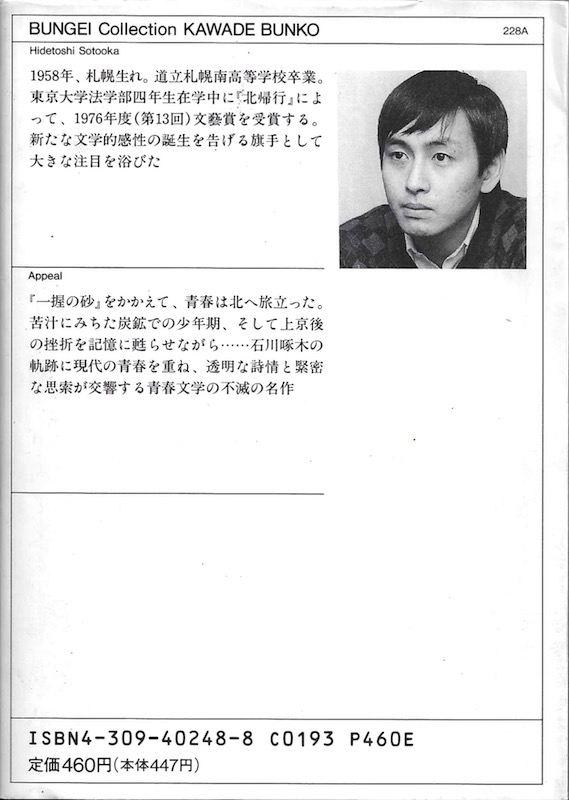 BUNGEI Collection KAWADE BUNKO
228A
Hidetoshi Sotooka
1958年、札幌生れ。道立札幌南高等学校卒業。
東京大学法学部四年生在学中に『北帰行』によ
って、1976年度(第13回)文藝賞を受賞する。
新たな文学的感性の誕生を告げる旗手として
大きな注目を浴びた
Appeal
『一握の砂』をかかえて、青春は北へ旅立った。
苦汁にみちた炭鉱での少年期、そして上京後
の挫折を記憶に甦らせながら……石川啄木の
軌跡に現代の青春を重ね、透明な詩情と緊密
な思索が交響する青春文学の不滅の名作
ISBN4-309-40248-8 C0193 P460E
定価460円(本体447円)